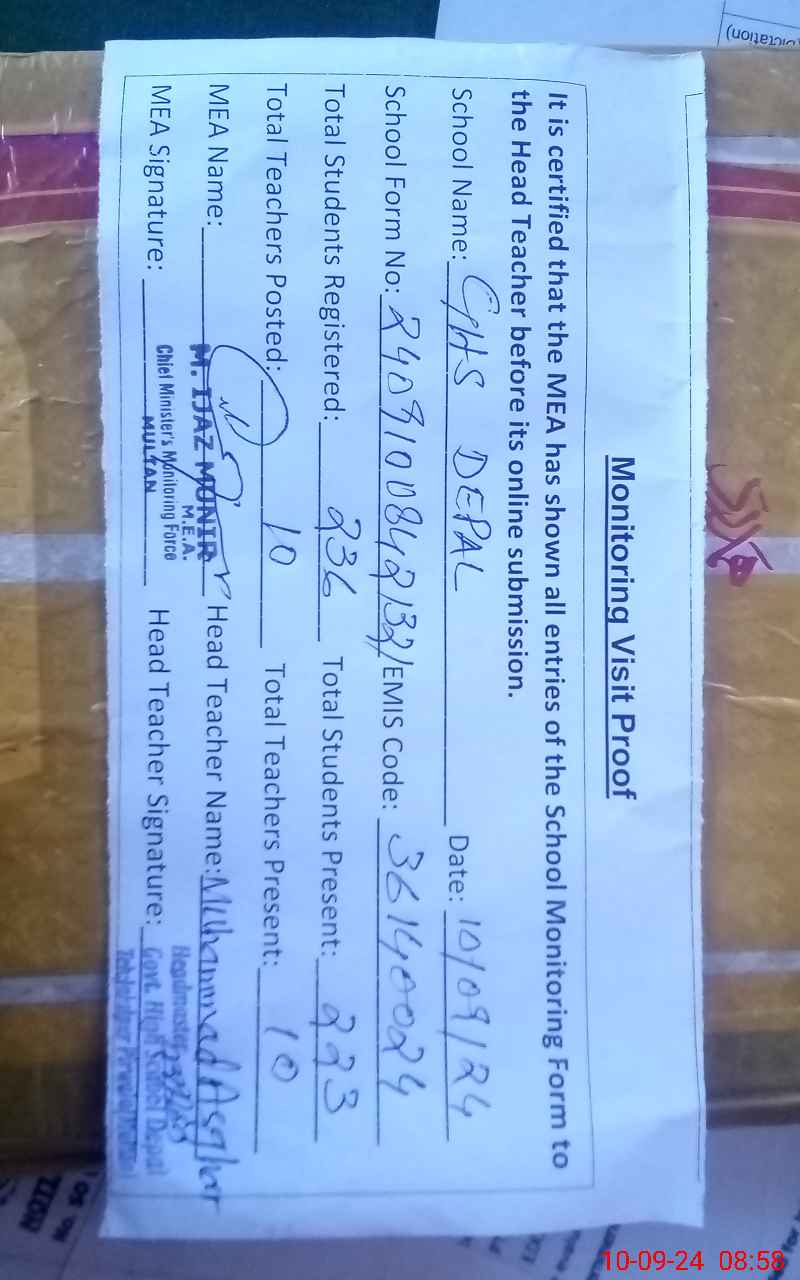 Monitoring Visit Proof
It is certified that the MEA has shown all entries of the School Monitoring Form to
the Head Teacher before its online submission.
School Name: GHS DEPAL Date: 10/09/24
School Form No: 2409100842132/EMIS Code: 36140024
Total Students Registered: 236 Total Students Present: 223
Total Teachers Posted: 10 Total Teachers Present: 10
MEA Name: Head Teacher Name: Muhammad Asghar
M. IJAZ MUNIR
M.E.A.
Chief Minister's Monitoring Force
MULTAN
MEA Signature: Head Teacher Signature:
Headmaster
Govt. High School Depal
10-09-24 08:58